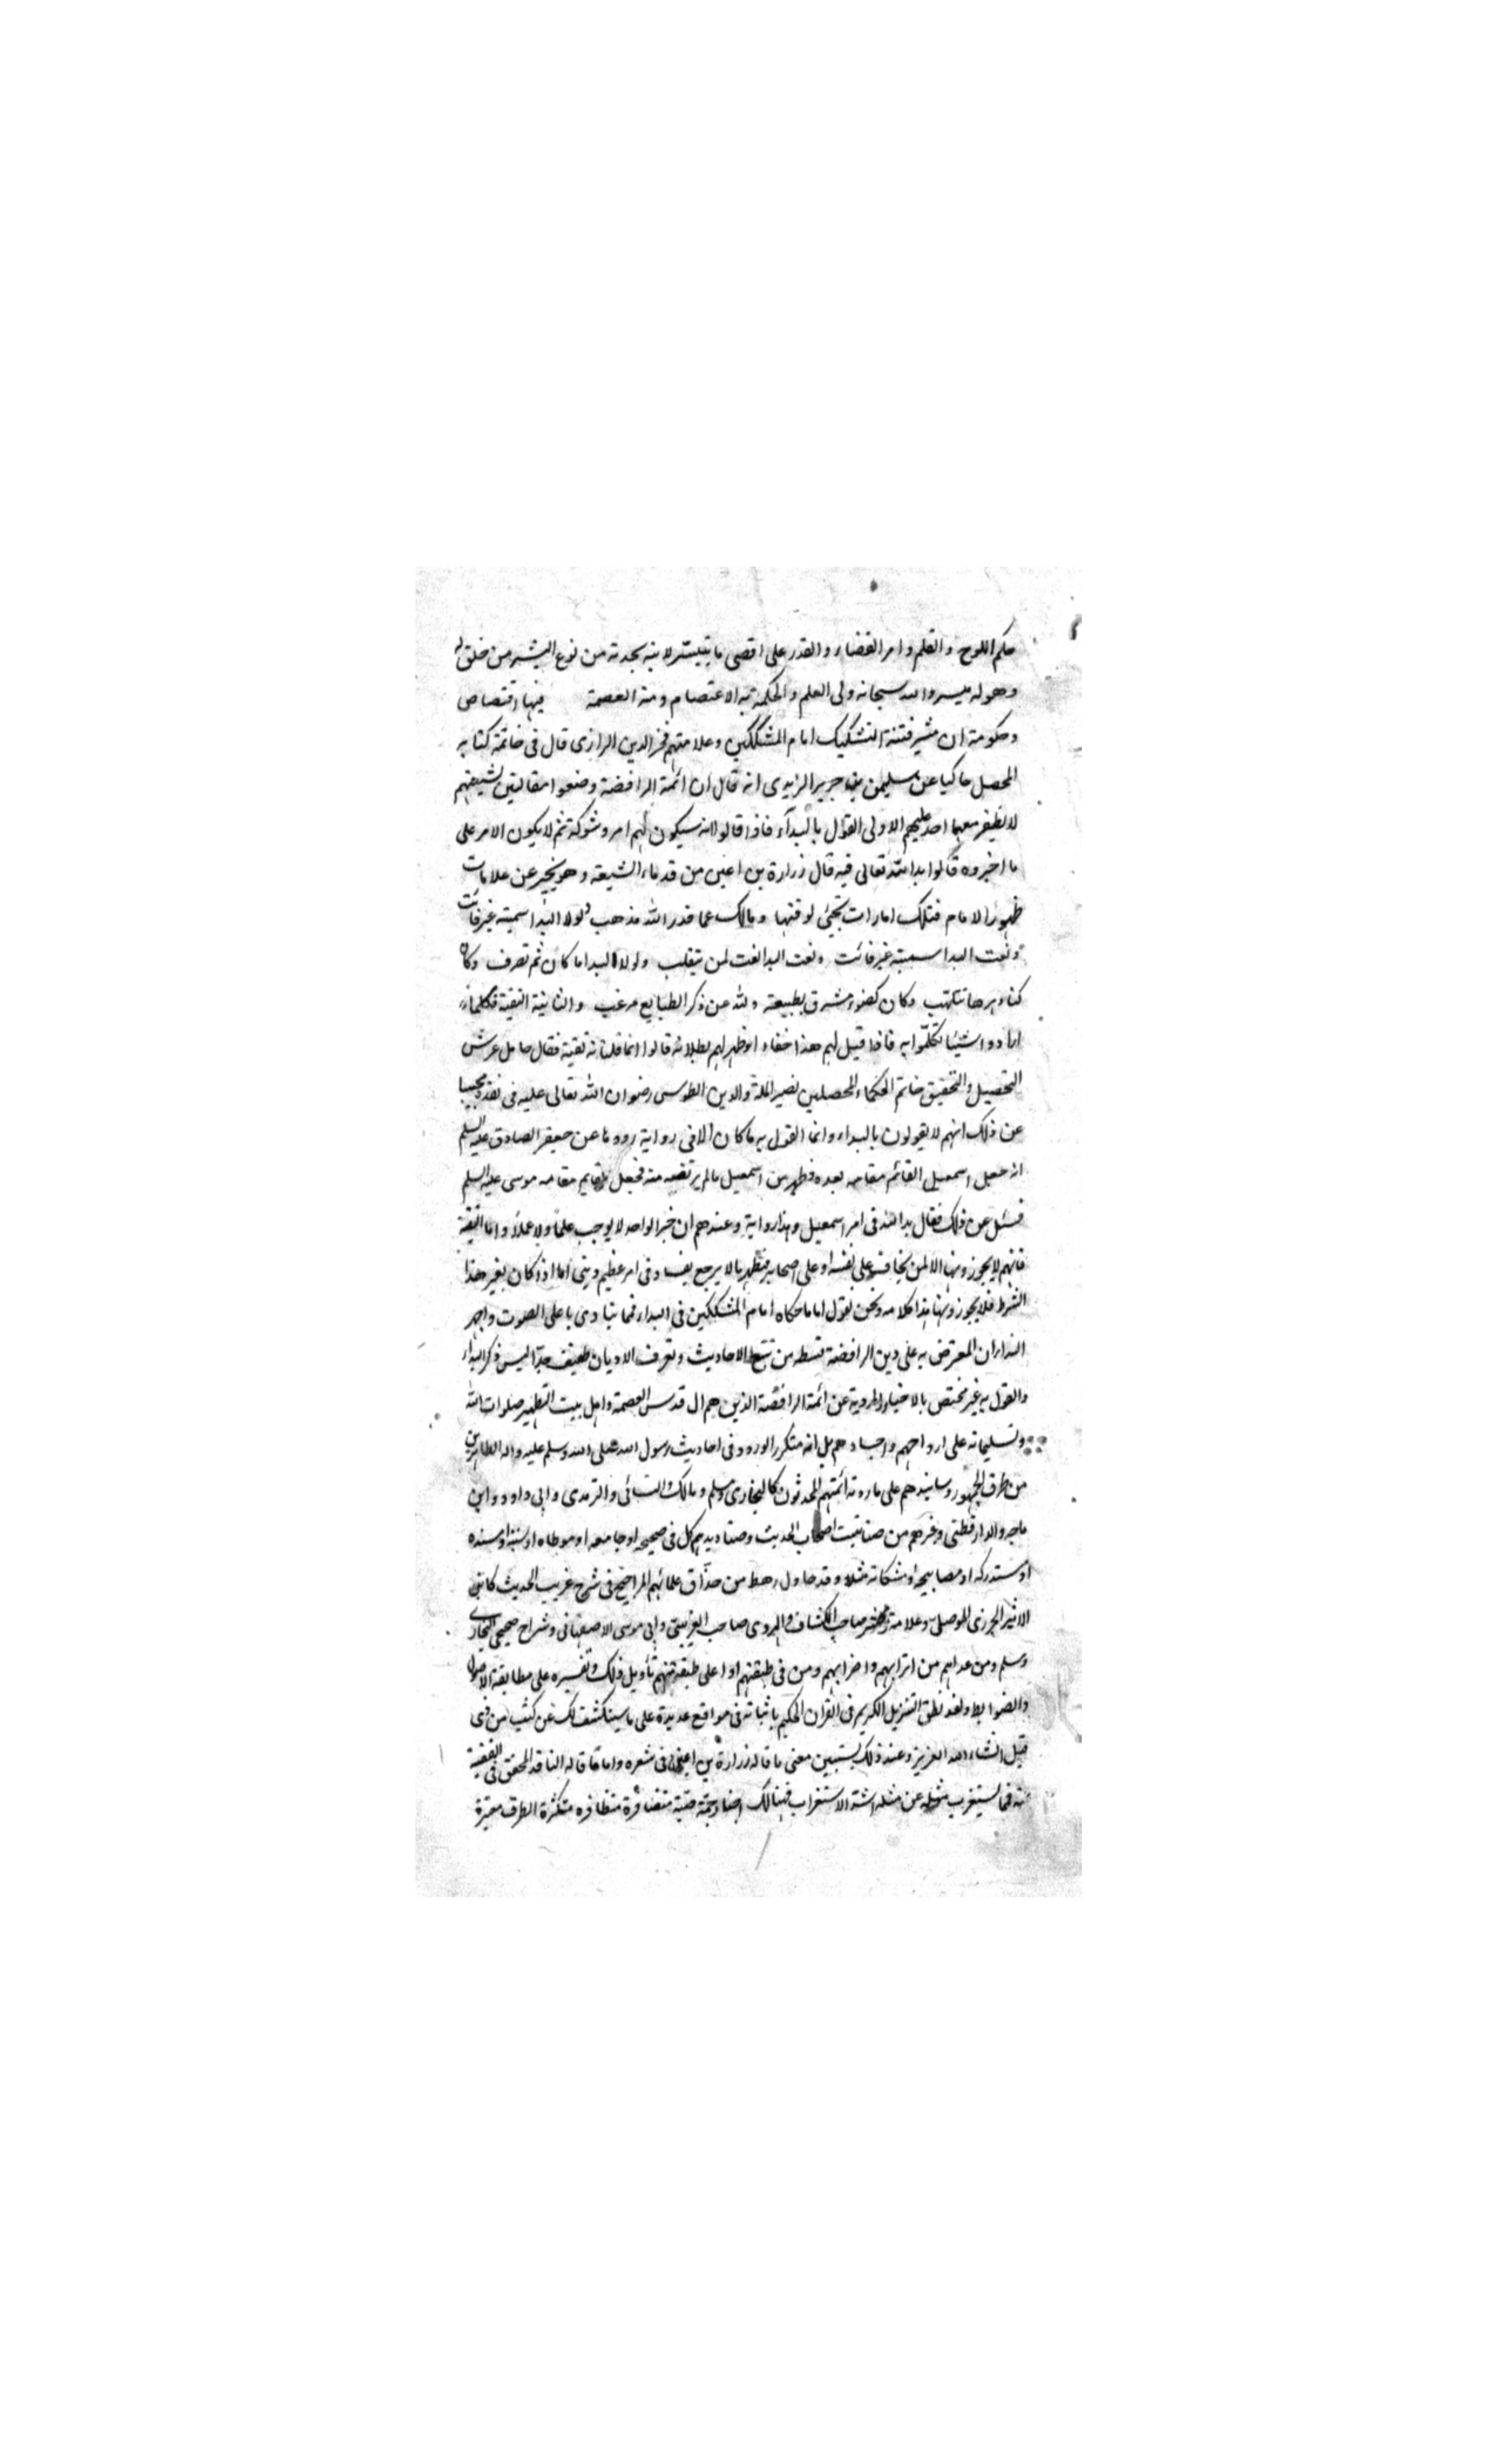 حكم اللوح والقلم وامر القضاء والقدر على اقصى ما يتيسر لابنه بجدته من نوع البشر من خلق له
وهو له ميسر والله سبحانه ولى العلم والحكمة به الاعتصام ومنه العصمة فيها اقتصاص
وحكومة ان مثير فتنة التشكيك امام المشككين وعلامتهم فخر الدين الرازى قال فى خاتمة كتابه
المحصل حاكيا عن سليمن بن جرير الزيدى انه قال ان ائمة الرافضة وضعوا مقالتين لشيعتهم
لا يظفر معهما احد عليهم الاولى القول بالبداء فاذا قالوا انه سيكون لهم امر وشوكة ثم لا يكون الامر على
ما اخبروه قالوا بدا لله تعالى فيه قال زرارة بن اعين من قدماء الشيعة وهو يخبر عن علامات
ظهور الامام فتلك امارات تجئ لوقتها ومالك عما قدر الله مذهب ولولا البدا سميته غير فائت
ونعت البدا سميته غير فائت ونعت البدا نعت لمن يتقلب ولولا البدا ما كان ثم تصرف وكان
كنار دهرها تتلهب وكان كضوء مشرق بطبيعة ولله عن ذكر الطبايع مرغب والثانية التقية فكلما
ارادوا شيئا تكلموا به فاذا قيل لهم هذا خطاء او ظهر لهم بطلانه قالوا انما قلناه تقية فقال حامل عرش
التحصيل والتحقيق خاتم الحكماء المحصلين نصير الملة والدين الطوسى رضوان الله تعالى عليه فى نقده مجيبا
عن ذلك انهم لا يقولون بالبداء وانما القول به ما كان الا فى رواية رووها عن جعفر الصادق عليه السلم
انه جعل اسمعيل القائم مقامه بعده فظهر من اسمعيل مالم يرتضه منه فجعل القايم مقامه موسى عليه السلم
فسئل عن ذلك فقال بدا لله فى امر اسمعيل وهذا رواية وعندهم ان خبر الواحد لا يوجب علما ولا عملا واما التقية
فانهم لا يجوزونها الا لمن يخاف على نفسه او على اصحابه فيظهر ما لا يرجع بفساد فى امر عظيم دينى اما اذا كان بغير هذا
الشرط فلا يجوزونها هذا كلامه ونحن نقول اما ما حكاه امام المشككين فى البداء فمما ينادى باعلى الصوت واجهر
النداء ان المعترض به على دين الرافضة قسطه من تتبع الاحاديث وتعرف الاديان طفيف جدا اليس ذكر البداء
والقول به غير مختص بالاخبار المروية عن ائمة الرافضة الذين هم ال قدس العصمة واهل بيت التطهير صلوات الله
وتسليماته على ارواحهم واجسادهم بل انه متكرر الورود فى احاديث رسول الله صلى الله وسلم عليه واله الطاهرين
من طرق الجمهور وسانيدهم على ما روته ائمتهم المحدثون كالبخارى ومسلم ومالك والنسائى والترمذى وابى داود وابن
ماجه والدارقطنى وغيرهم من صناتيت اصحاب الحديث وصناديدهم كل فى صحيحه او جامعه او موطاه او سننه او مسنده
او مستدركه او مصابيحه او مشكاته مثلا وقد حاول رهط من حذاق علمائهم المراجيح فى شرح غريب الحديث كابنى
الاثير الجزرى الموصلى وعلامة زمخشر صاحب الكشاف والهروى صاحب الغريبين وابى موسى الاصفهانى وشراح صحيحى البخارى
ومسلم ومن عداهم من اترابهم واضرابهم ومن فى طبقتهم او اعلى طبقة منهم تأويل ذلك وتفسيره على مطابقة الاصول
والضوابط ولقد نطق التنزيل الكريم فى القران الحكيم باثباته فى مواقع عديدة على ما سينكشف لك عن كثب من ذى
قبل انشاء الله العزيز وعند ذلك يستبين معنى ما قاله زرارة بن اعين فى شعره واما ما قاله الناقد المحقق فى التقية
عنه فما يستغرب مثله عن مثله اشد الاستغراب فهنالك اخبار جمة متضافرة متظافره متكثرة الطرق معتبرة